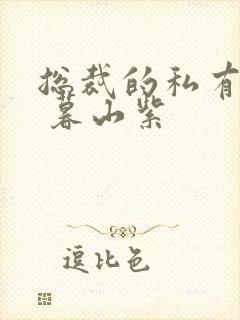 总裁的私有
暮山紫
逗比色